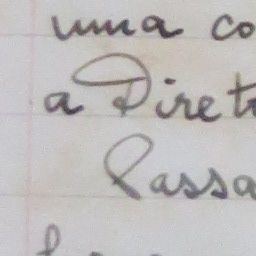 uma co
a Diret
Passa